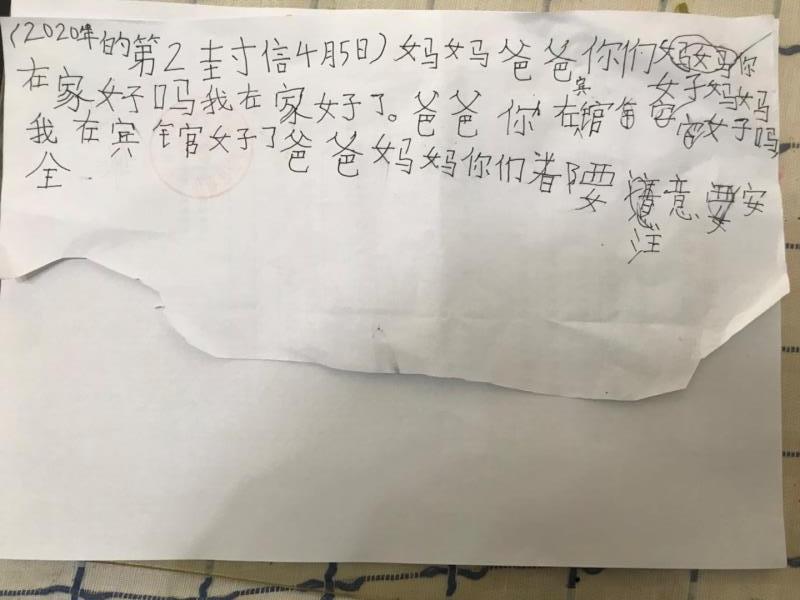 (2020年的第2封信4月5日)妈妈爸爸你们妈妈你
在家好吗我在家好了。爸爸你在宾馆好吗
好妈妈
我在宾馆好了爸爸妈妈你们都要注意安
全